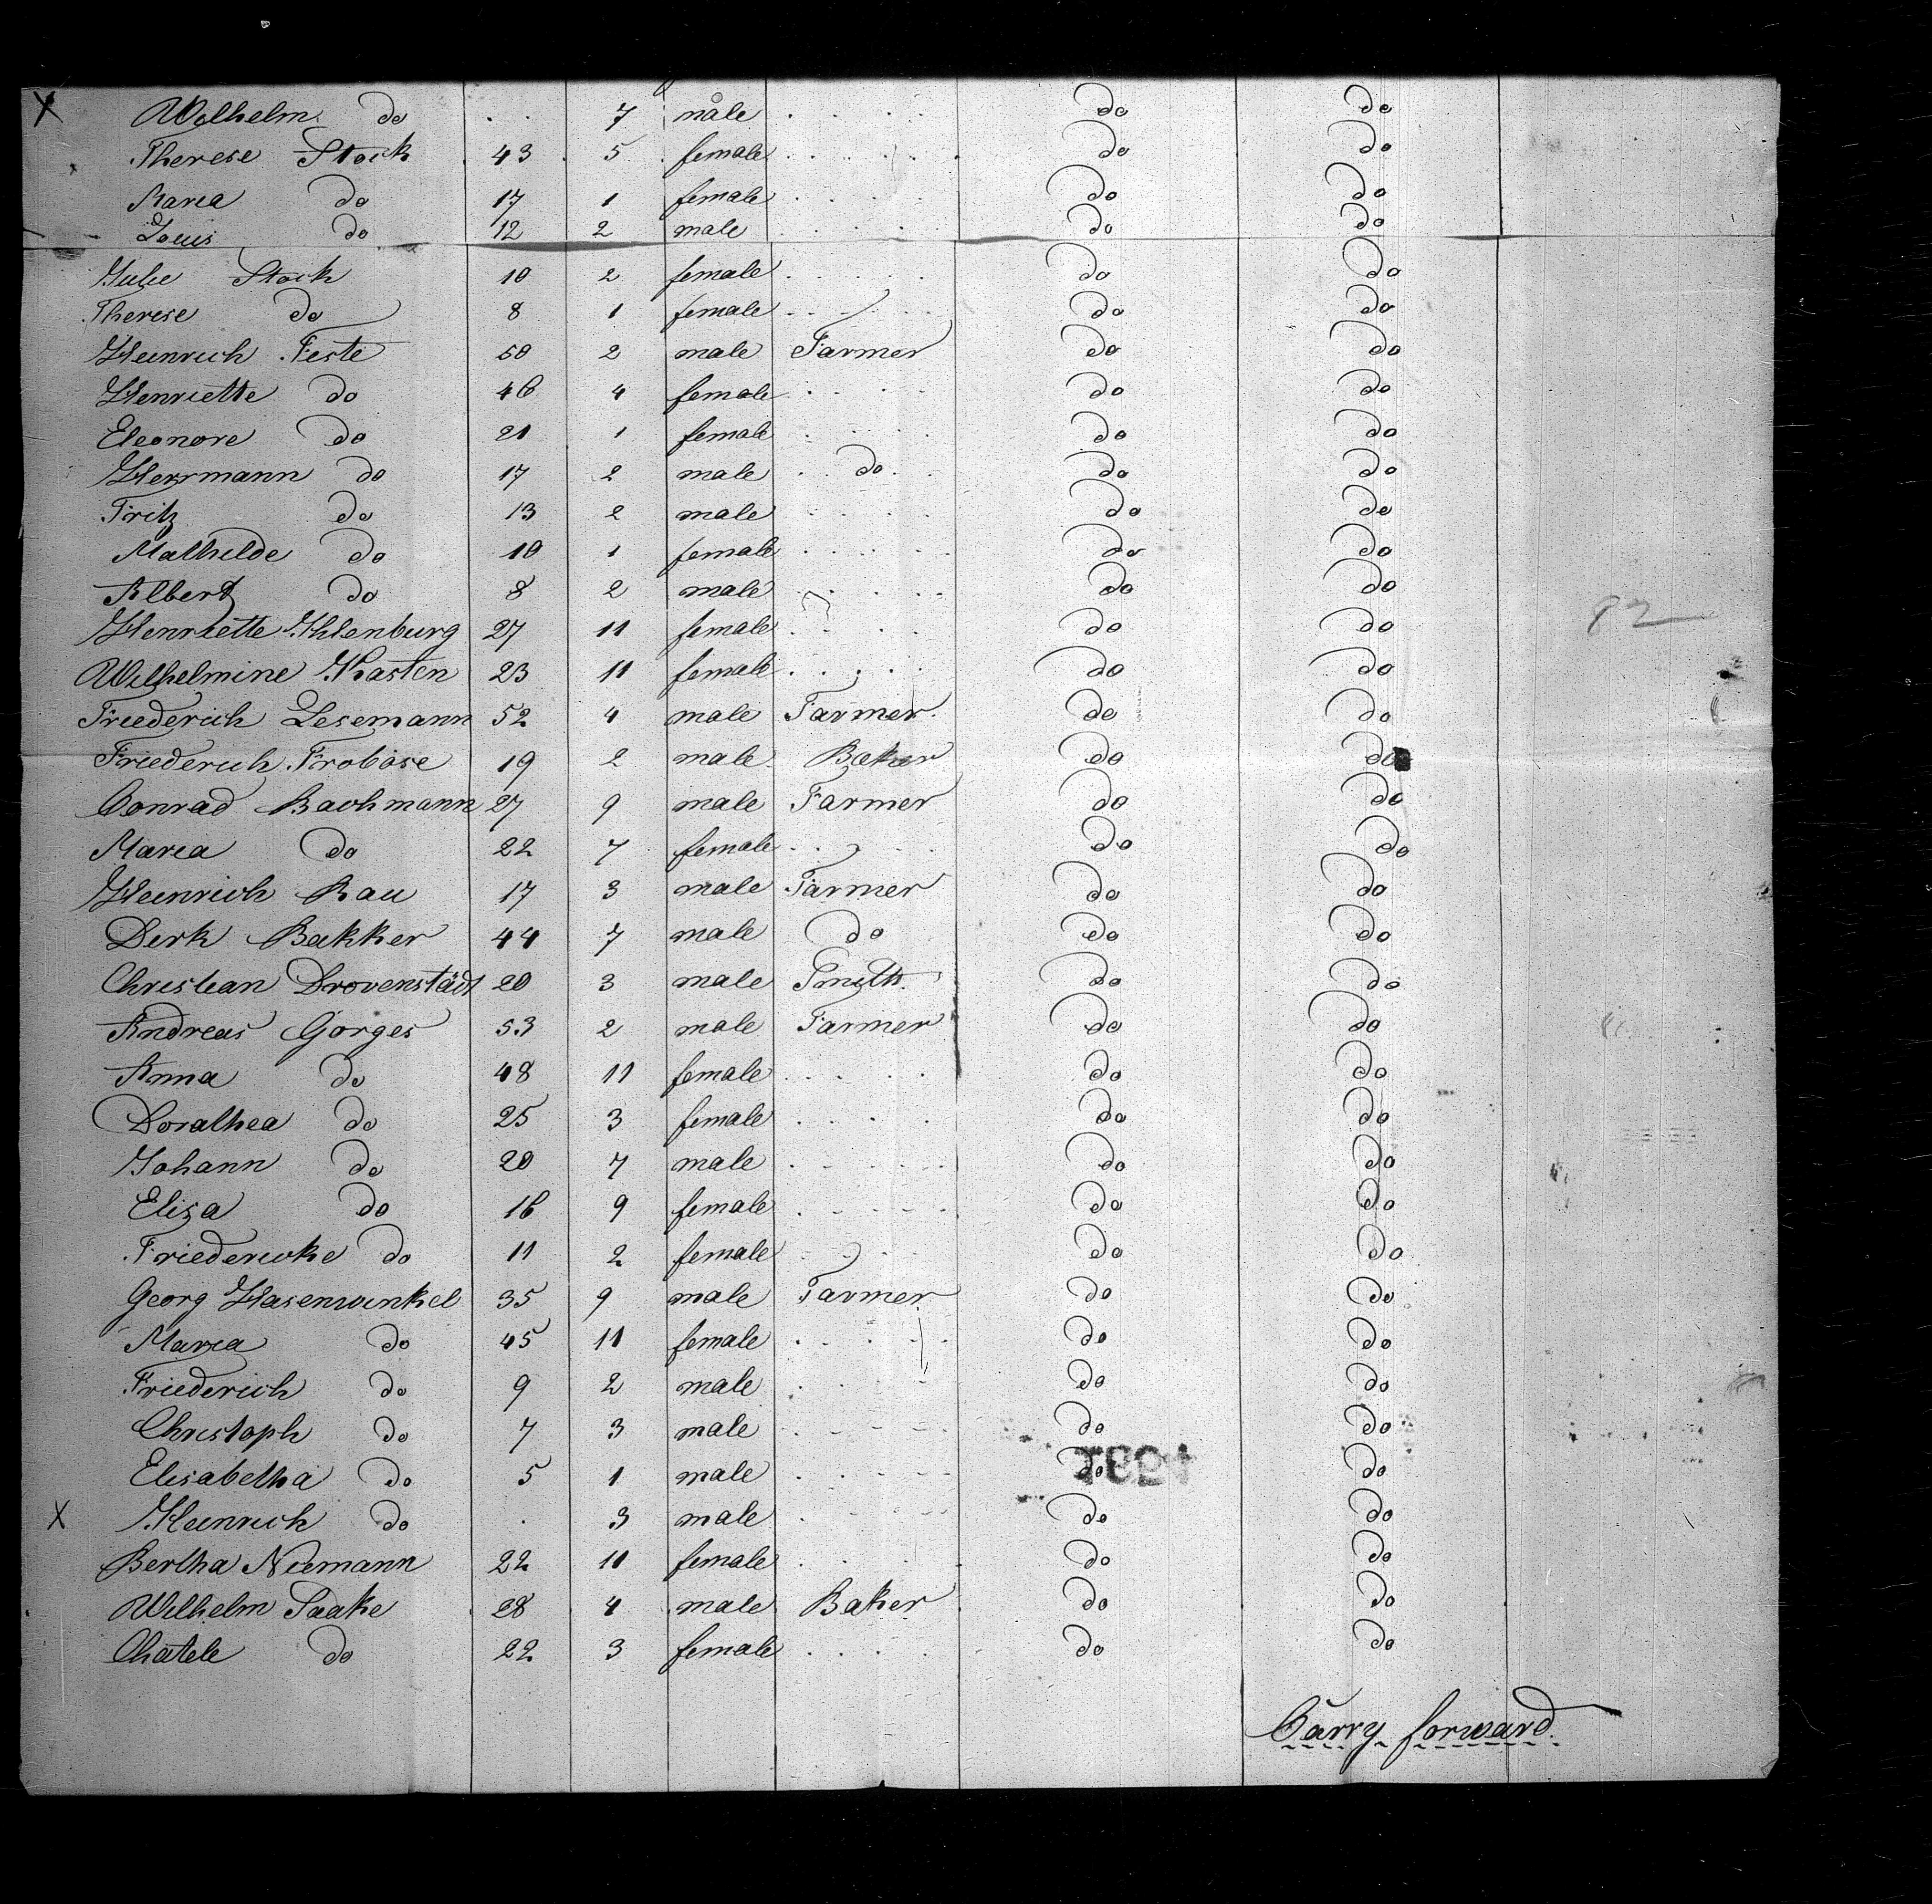 X Wilhelm do . . 7 male . . . . do do
Therese Stock 43 5 female . . . . . do do
Maria do 17 1 female . . . . . do do
Louis do 12 2 male . . . . . do do
Julie Stock 10 2 female . . . . . do do
Therese do 8 1 female . . . . . do do
Heinrich Feste 50 2 male Farmer do do
Henriette do 46 4 female . . . . do do
Eleonore do 21 1 female . . . . do do
Herrmann do 17 2 male . do . . do do
Fritz do 13 2 male . . . . do do
Mathilde do 10 1 female . . . . . do do
Albert do 8 2 male . . . . . do do
Henriette Ihlenburg 27 11 female . . . . do do
82
Wilhelmine Kasten 23 11 female . . . . . do do
Friederich Lesemann 52 4 male Farmer. do do
Friederich Froböse 19 2 male Baker do do
Conrad Bachmann 27 9 male Farmer do do
Maria do 22 7 female . . . . do do
Heinrich Rau 17 3 male Farmer do do
Derk Bakker 44 7 male do do do
Christian Drovenstädt 20 3 male Smith. do do
Andreas Görges 53 2 male Farmer do do
Anna do 48 11 female . . . . . do do
Dorathea do 25 3 female . . . . do do
Johann do 20 7 male . . . . . do do
Elisa do 16 9 female . . . . . do do
Friedericke do 11 2 female . . . do do
Georg Hasenwinkel 35 9 male Farmer do do
Maria do 45 11 female . . . . . do do
Friederich do 9 2 male . . . . do do
Christoph do 7 3 male . . . . . do do
Elisabetha do 5 1 male . . . . . do do
X Heinrich do . 3 male . . . . do do
Bertha Niemann 22 11 female . . . . do do
Wilhelm Saake 28 4 male Baker do do
Chatele do 22 3 female . . . . do do
Carry forward.